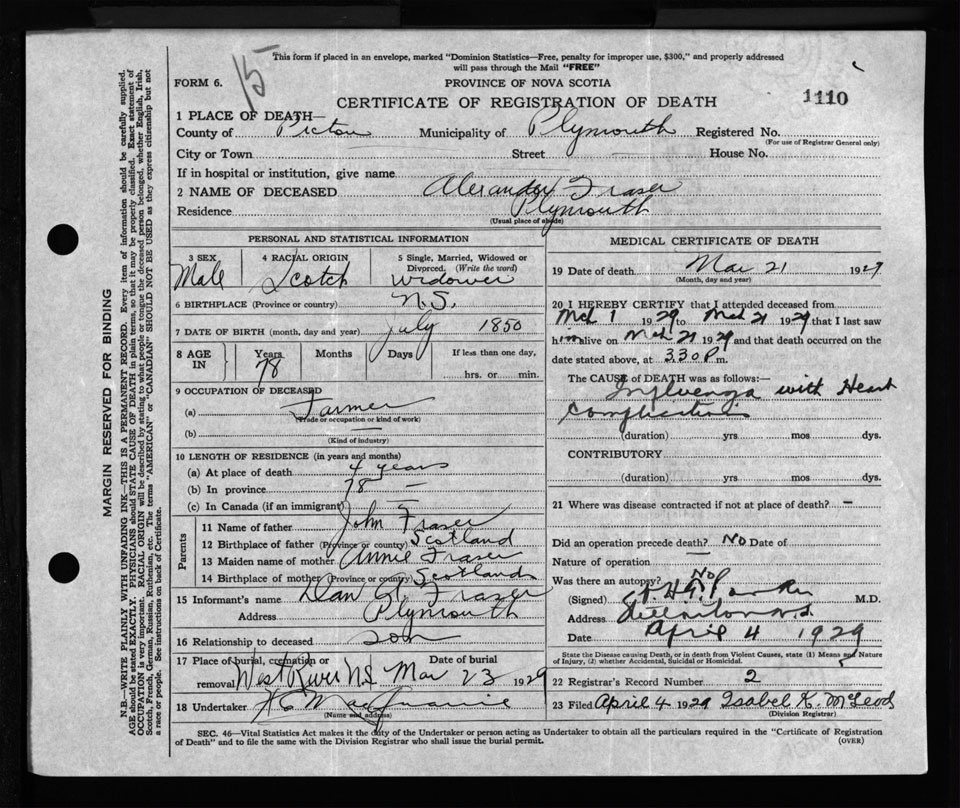 15
This form if placed in an envelope, marked "Dominion Statistics—Free, penalty for improper use, $300," and properly addressed
will pass through the Mail "FREE"
FORM 6.
PROVINCE OF NOVA SCOTIA
CERTIFICATE OF REGISTRATION OF DEATH
1110
1 PLACE OF DEATH—
County of Pictou Municipality of Plymouth Registered No.
(For use of Registrar General only)
City or Town Street House No.
If in hospital or institution, give name
2 NAME OF DECEASED Alexander Fraser
Residence Plymouth
(Usual place of abode)
PERSONAL AND STATISTICAL INFORMATION
3 SEX 4 RACIAL ORIGIN 5 Single, Married, Widowed or
Divorced. (Write the word)
Male Scotch widower
6 BIRTHPLACE (Province or country) N.S.
7 DATE OF BIRTH (month, day and year) July 1850
8 AGE IN Years Months Days If less than one day,
78 hrs. or min.
9 OCCUPATION OF DECEASED
(a) Farmer
(Trade or occupation or kind of work)
(b) —
(Kind of industry)
10 LENGTH OF RESIDENCE (in years and months)
(a) At place of death 4 years
(b) In province 78 —
(c) In Canada (if an immigrant) —
Parents
11 Name of father John Fraser
12 Birthplace of father (Province or country) Scotland
13 Maiden name of mother Annie Fraser
14 Birthplace of mother (Province or county) Scotland
15 Informant's name Dan A. Fraser
Address Plymouth
16 Relationship to deceased son
17 Place of burial, cremation or removal West River N.S. Date of burial Mar 23 1929
18 Undertaker
(Name and address)
MEDICAL CERTIFICATE OF DEATH
19 Date of death Mar 21 1929
(Month, day and year)
20 I HEREBY CERTIFY that I attended deceased from
Mch 1 1929 to Mch 21 1929 that I last saw
him alive on Mch 21 1929 and that death occurred on the
date stated above, at 3.30 P m.
The CAUSE of DEATH was as follows:—
Influenza with Heart
complications
(duration) yrs mos dys.
CONTRIBUTORY
(duration) yrs mos dys.
21 Where was disease contracted if not at place of death? —
Did an operation precede death? NO Date of
Nature of operation —
Was there an autopsy? NO
(Signed) M.D.
Address N.S.
Date April 4 1929
State the Disease causing Death, or in death from Violent Causes, state (1) Means and Nature
of Injury, (2) whether Accidental, Suicidal or Homicidal.
22 Registrar's Record Number 2
23 Filed April 4 1929 Isabel K. McLeod
(Division Registrar)
SEC. 46—Vital Statistics Act makes it the duty of the Undertaker or person acting as Undertaker to obtain all the particulars required in the "Certificate of Registration
of Death" and to file the same with the Division Registrar who shall issue the burial permit.
(OVER)
MARGIN RESERVED FOR BINDING
N.B.—WRITE PLAINLY WITH UNFADING INK—THIS IS A PERMANENT RECORD. Every item of information should be carefully supplied.
AGE should be stated EXACTLY. PHYSICIANS should STATE CAUSE OF DEATH in plain terms, so that it may be properly classified. Exact statement of
OCCUPATION is very important. RACIAL ORIGIN will be described by stating to what people or tongue the deceased person belonged, whether English, Irish,
Scotch, French, German, Russian, Ruthenian, etc. The terms "AMERICAN" or "CANADIAN" SHOULD NOT BE USED as they express citizenship but not
a race or people. See instructions on back of Certificate.